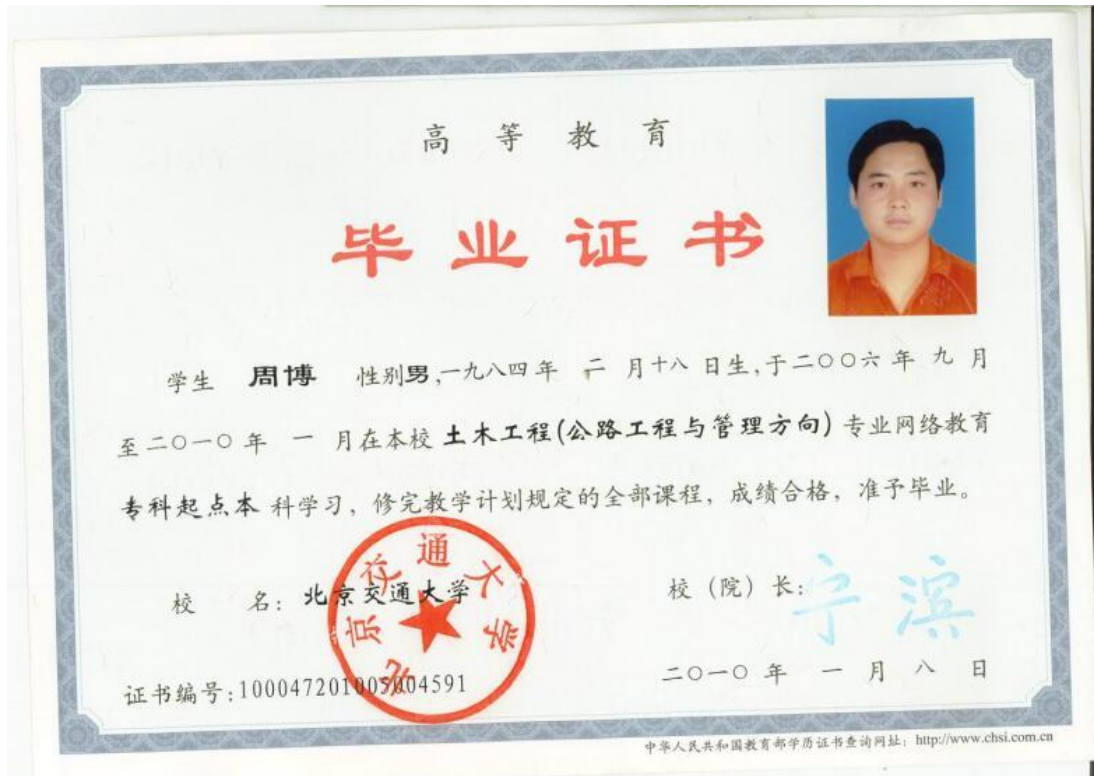 高等教育
毕业证书
学生 周博 性别男,一九八四年 二 月十八 日生,于二〇〇六年 九 月
至二〇一〇年 一 月在本校 土木工程(公路工程与管理方向) 专业网络教育
专科起点本 科学习，修完教学计划规定的全部课程，成绩合格，准予毕业。
北京交通大学
校 名: 北京交通大学
校（院）长: 宁滨
证书编号:100047201005004591
二〇一〇年 一 月 八 日
中华人民共和国教育部学历证书查询网址: http://www.chsi.com.cn